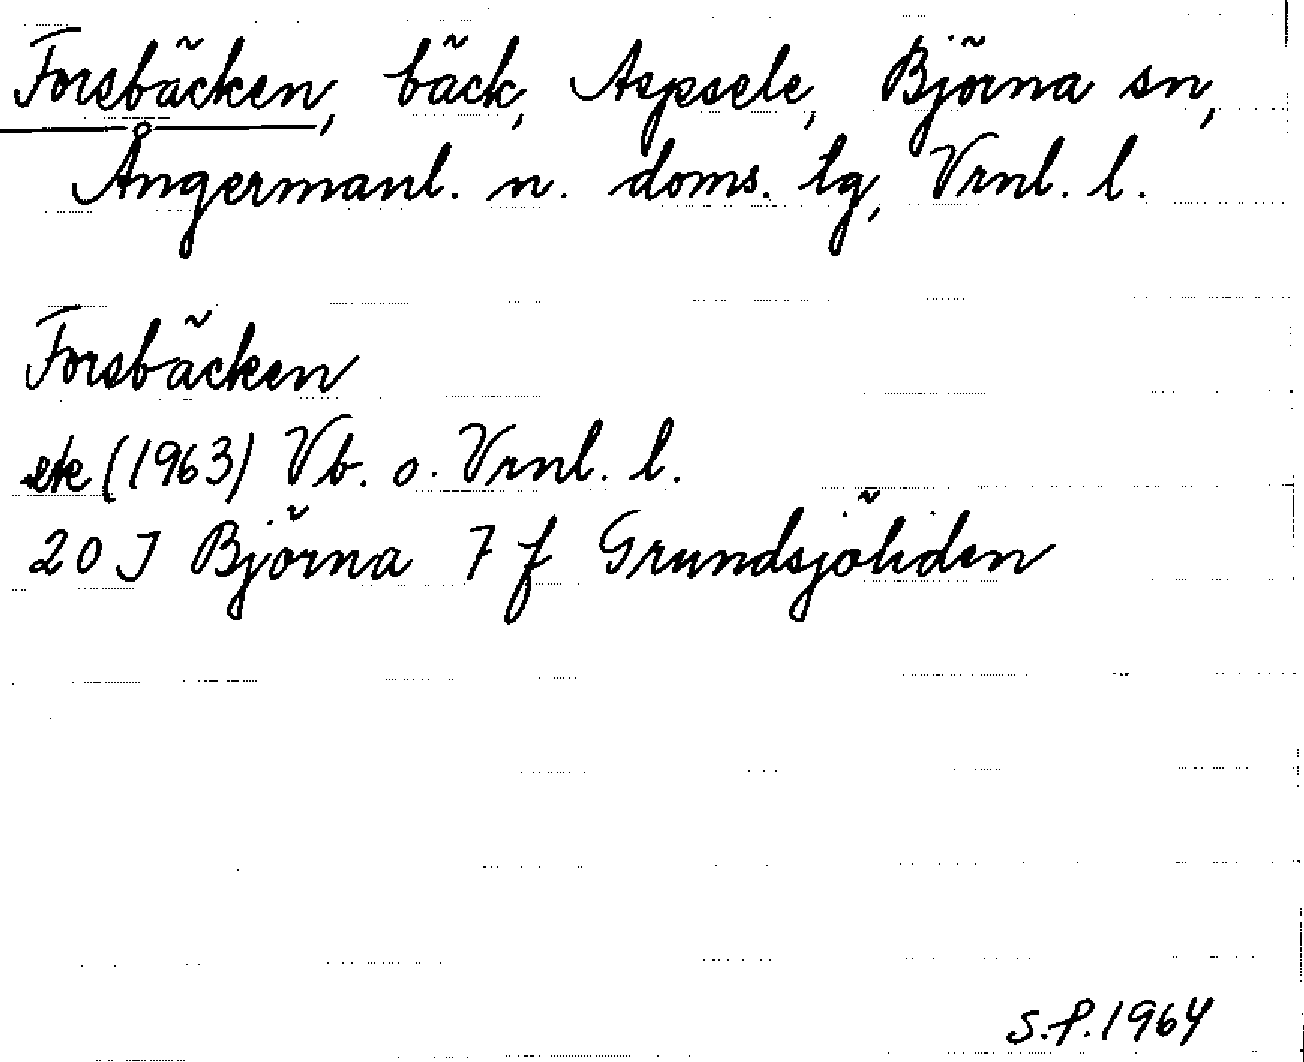 Forsbäcken, bäck, Aspsele, Björna sn,
Ångermanl. n. doms. lg, Vrnl. l.
Forsbäcken
ek (1963) Vb. o. Vrnl. l.
20 J Björna 7 f Grundsjöliden
S.P. 1964